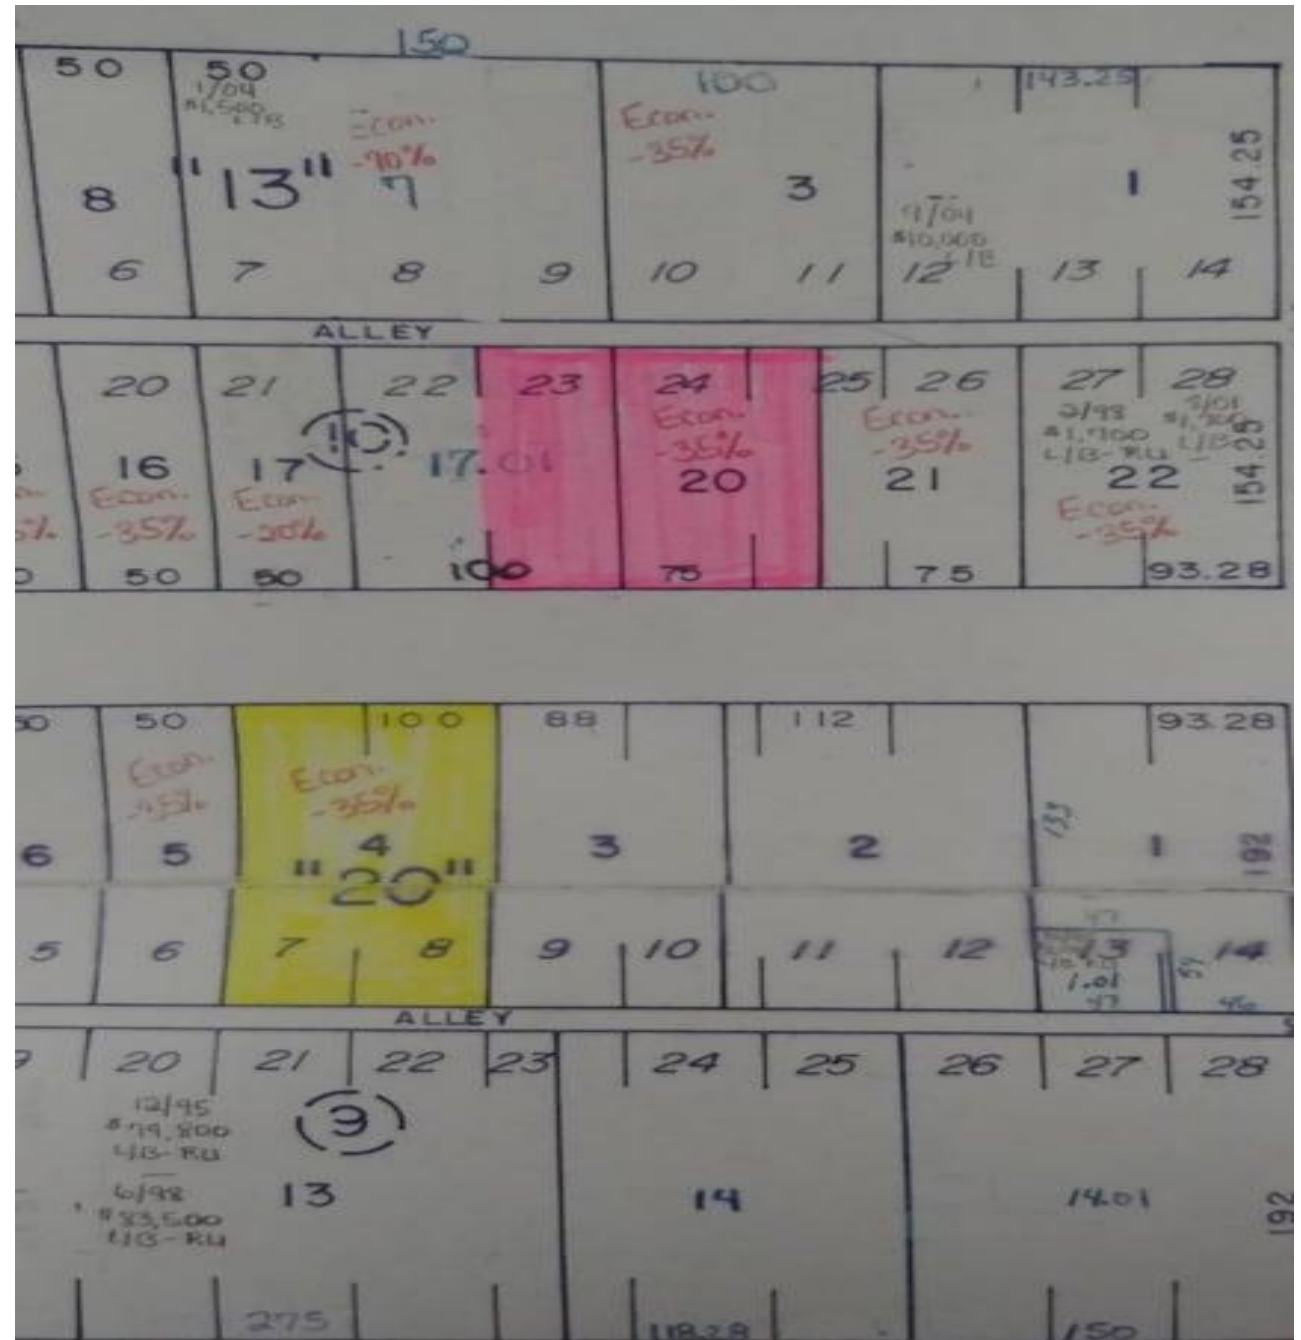 150
50 50 100 143.25
1/04
$1,500
L/B
Econ. Econ.
-90% -35%
8 "13" 7 3 1 154.25
9/04
$10,000
L/B
6 7 8 9 10 11 12 13 14
ALLEY
20 21 22 23 24 25 26 27 28
Econ. Econ. 2/98 5/01
-35% -35% $1,700
L/B-RU L/B
10
16 17 17.01 20 21 22 154.25
Econ. Econ. Econ.
-35% -20% -35%
50 50 100 75 75 93.28
50 50 100 88 112 93.28
Econ. Econ.
-35%
133
6 5 4 3 2 1 192
"20"
47
5 6 7 8 9 10 11 12 13 14
1.01 59
47 46
ALLEY
20 21 22 23 24 25 26 27 28
12/95
$79,800
L/B-RU
3
6/98
$83,500
L/B-RU
13 14 14.01 192
275 118.28 150